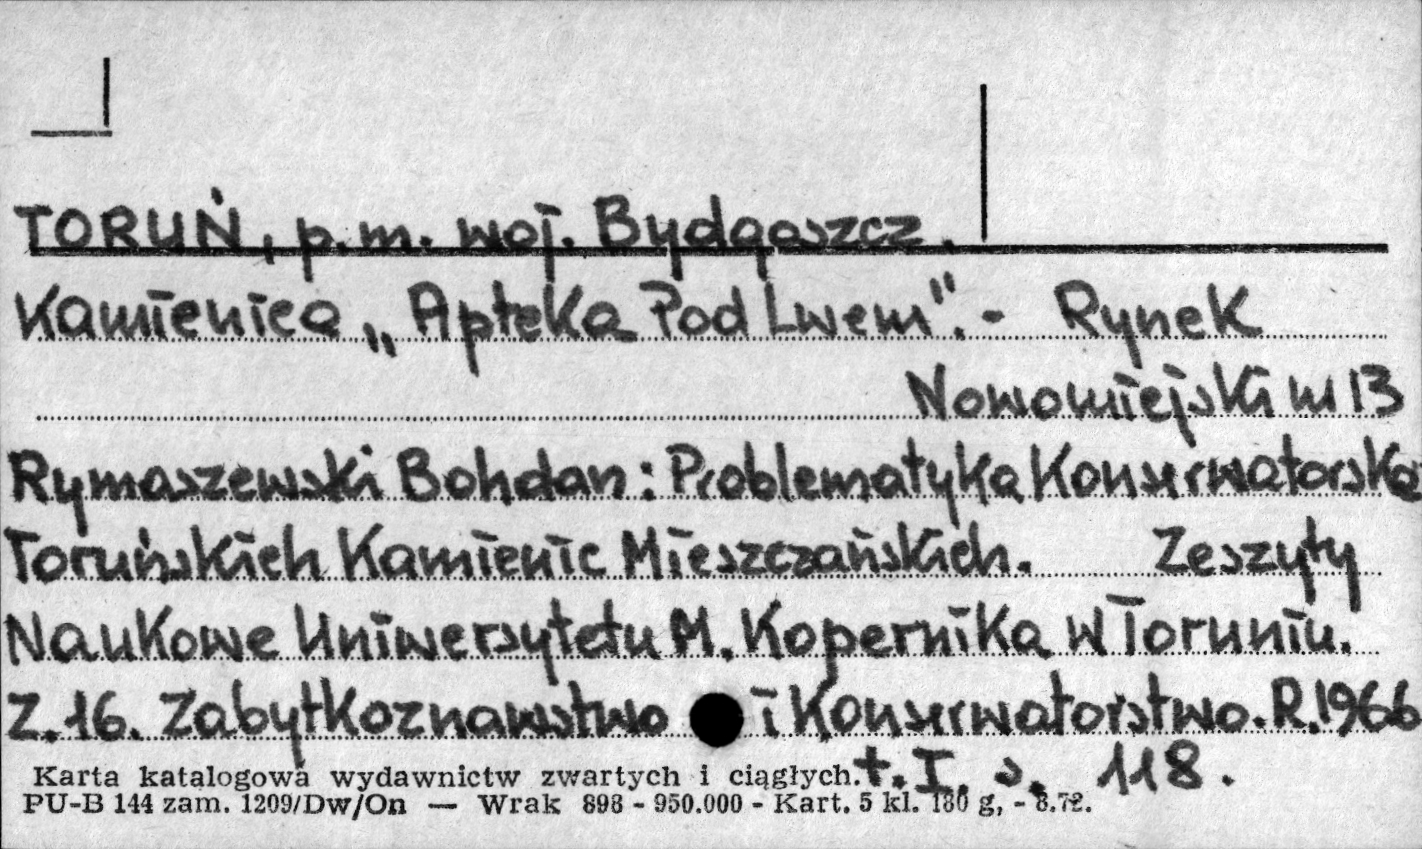 TORUŃ, p.m. woj. Bydgoszcz.
Kamienica „Apteka Pod Lwem”.- Rynek
Nowomiejski nr 13
Rymaszewski Bohdan: Problematyka Konserwatorska
Toruńskich Kamienic Mieszczańskich. Zeszyty
Naukowe Uniwersytetu M. Kopernika w Toruniu.
Z. 16. Zabytkoznawstwo i Konserwatorstwo. R. 1966
t. I. s. 118.
Karta katalogowa wydawnictw zwartych i ciągłych.
PU-B 144 zam. 1209/Dw/On — Wrak 898 - 950.000 - Kart. 5 kl. 180 g, - 8.72.